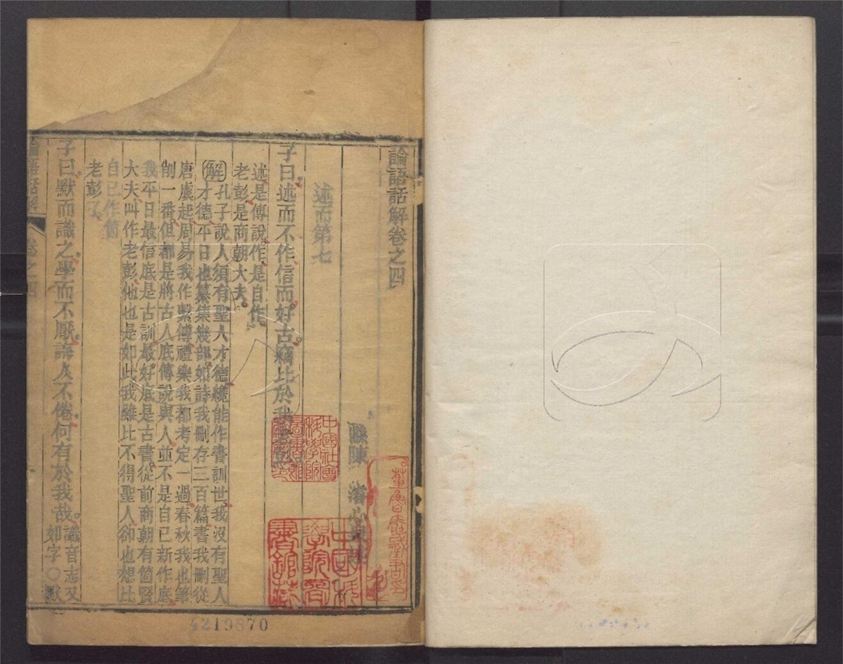 論語話解卷之四
陳濬
述而第七
子曰述而不作信而好古竊比於我老彭
述是傳說作是自作
老彭是商朝大夫
解孔子說人須有聖人才德纔能作書訓世我沒有聖人
才德平日也纂集幾部如詩我刪存三百篇書我刪從
唐虞起周易我作繫傳禮樂我都考定一過春秋我也筆
削一番但都是將古人底傳說與人並不是自己新作底
我平日最信底是古訓最好底是古書從前商朝有箇賢
大夫叫作老彭他也是如此我雖比不得聖人卻也想比
老彭
子曰默而識之學而不厭誨人不倦何有於我哉
識音志又
如字○默
論語話解
卷之四
4219870